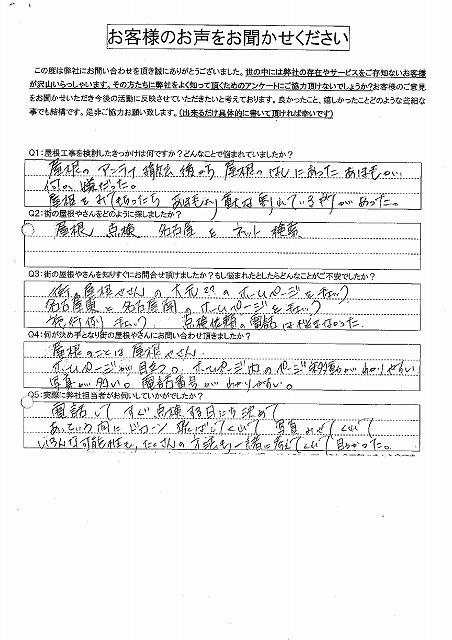 お客様のお声をお聞かせください
この度は弊社にお問い合わせを頂き誠にありがとうございました。世の中には弊社の存在やサービスをご存知ないお客様
が沢山いらっしゃいます。その方たちに弊社をよく知って頂くためのアンケートにご協力頂けないでしょうか?お客様のご意見
をお聞かせいただき今後の活動に反映させていただきたいと考えております。良かったこと、嬉しかったことどのような些細な
事でも結構です。是非ご協力お願い致します。(出来るだけ具体的に書いて頂ければ幸いです)
Q1:屋根工事を検討したきっかけは何ですか?どんなことで悩まれていましたか?
屋根の アンテナ 撤去 後から 屋根の はしに あった
何か 嫌だった。
屋根を みてもらったら 割れている所があった。
Q2:街の屋根やさんをどのように探しましたか?
屋根 点検 名古屋 と ネット 検索
Q3:街の屋根やさんを知りすぐにお問合せ頂けましたか?もし悩まれたとしたらどんなことがご不安でしたか?
街の屋根やさんの 大元?? の ホームページを チェック
名古屋東と 名古屋南の ホームページを チェック
施行例 チェック 点検依頼の電話は悩まなかった
Q4:何が決め手となり街の屋根やさんにお問い合わせ頂きましたか?
屋根のことは 屋根やさん
ホームページが 目立つ。ホームページ内の ページ移動が わかりやすい
写真が 多い。電話番号が わかりやすい。
Q5:実際に弊社担当者がお伺いしていかがでしたか?
電話して すぐ 点検する日にちを 決めて
あっという間に ドローン 飛ばしてくれて 写真 みせてくれて
いろんな可能性を、たくさんの方法を 一緒に 考えてくれて 助かった。